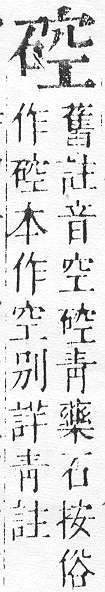 硿
舊註音空硿靑藥石按俗
作硿本作空别詳靑註